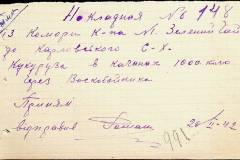 Накладная № 148
13 Комори К-на М. Зелений Гай
до Кадловского С-Х-
Кукуруза в качанах 1000 кило
через Восковойника
Приняли
відправив
20/II-42
991